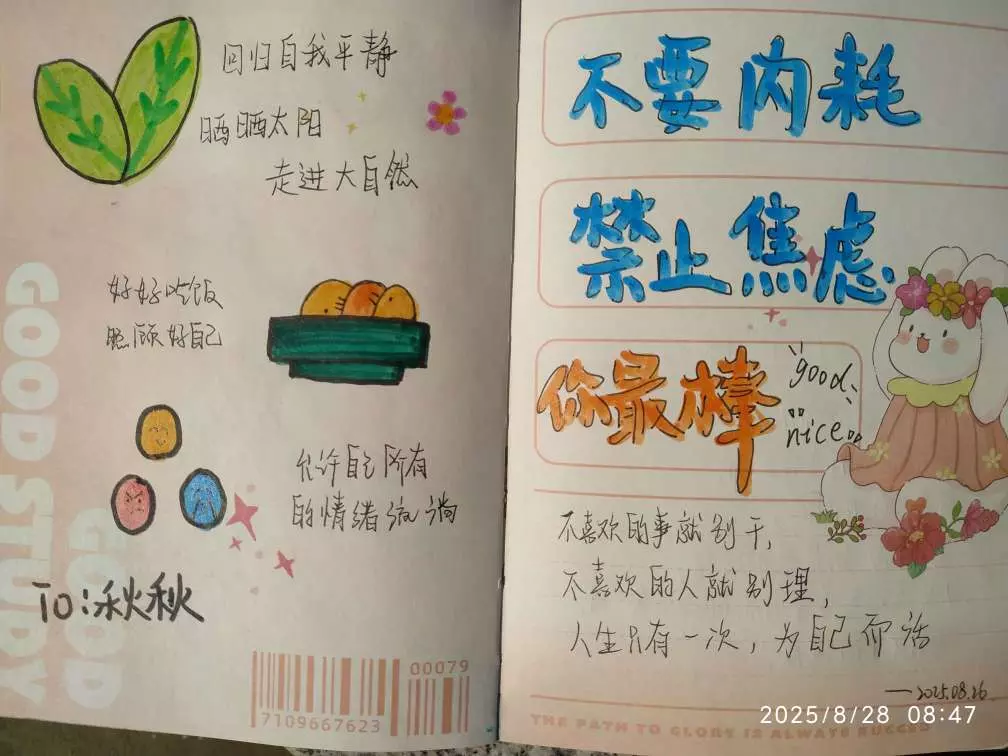 回归自我平静
晒晒太阳
走进大自然
好好吃饭
照顾好自己
允许自己所有
的情绪流淌
To:秋秋
GOOD STUDY
GOOD
00079
7109667623
不要内耗
禁止焦虑
你最棒
good
nice
不喜欢的事就别干,
不喜欢的人就别理,
人生只有一次,为自己而活
—2025.08.26
THE PATH TO GLORY IS ALWAYS RUGGED
2025/8/28 08:47